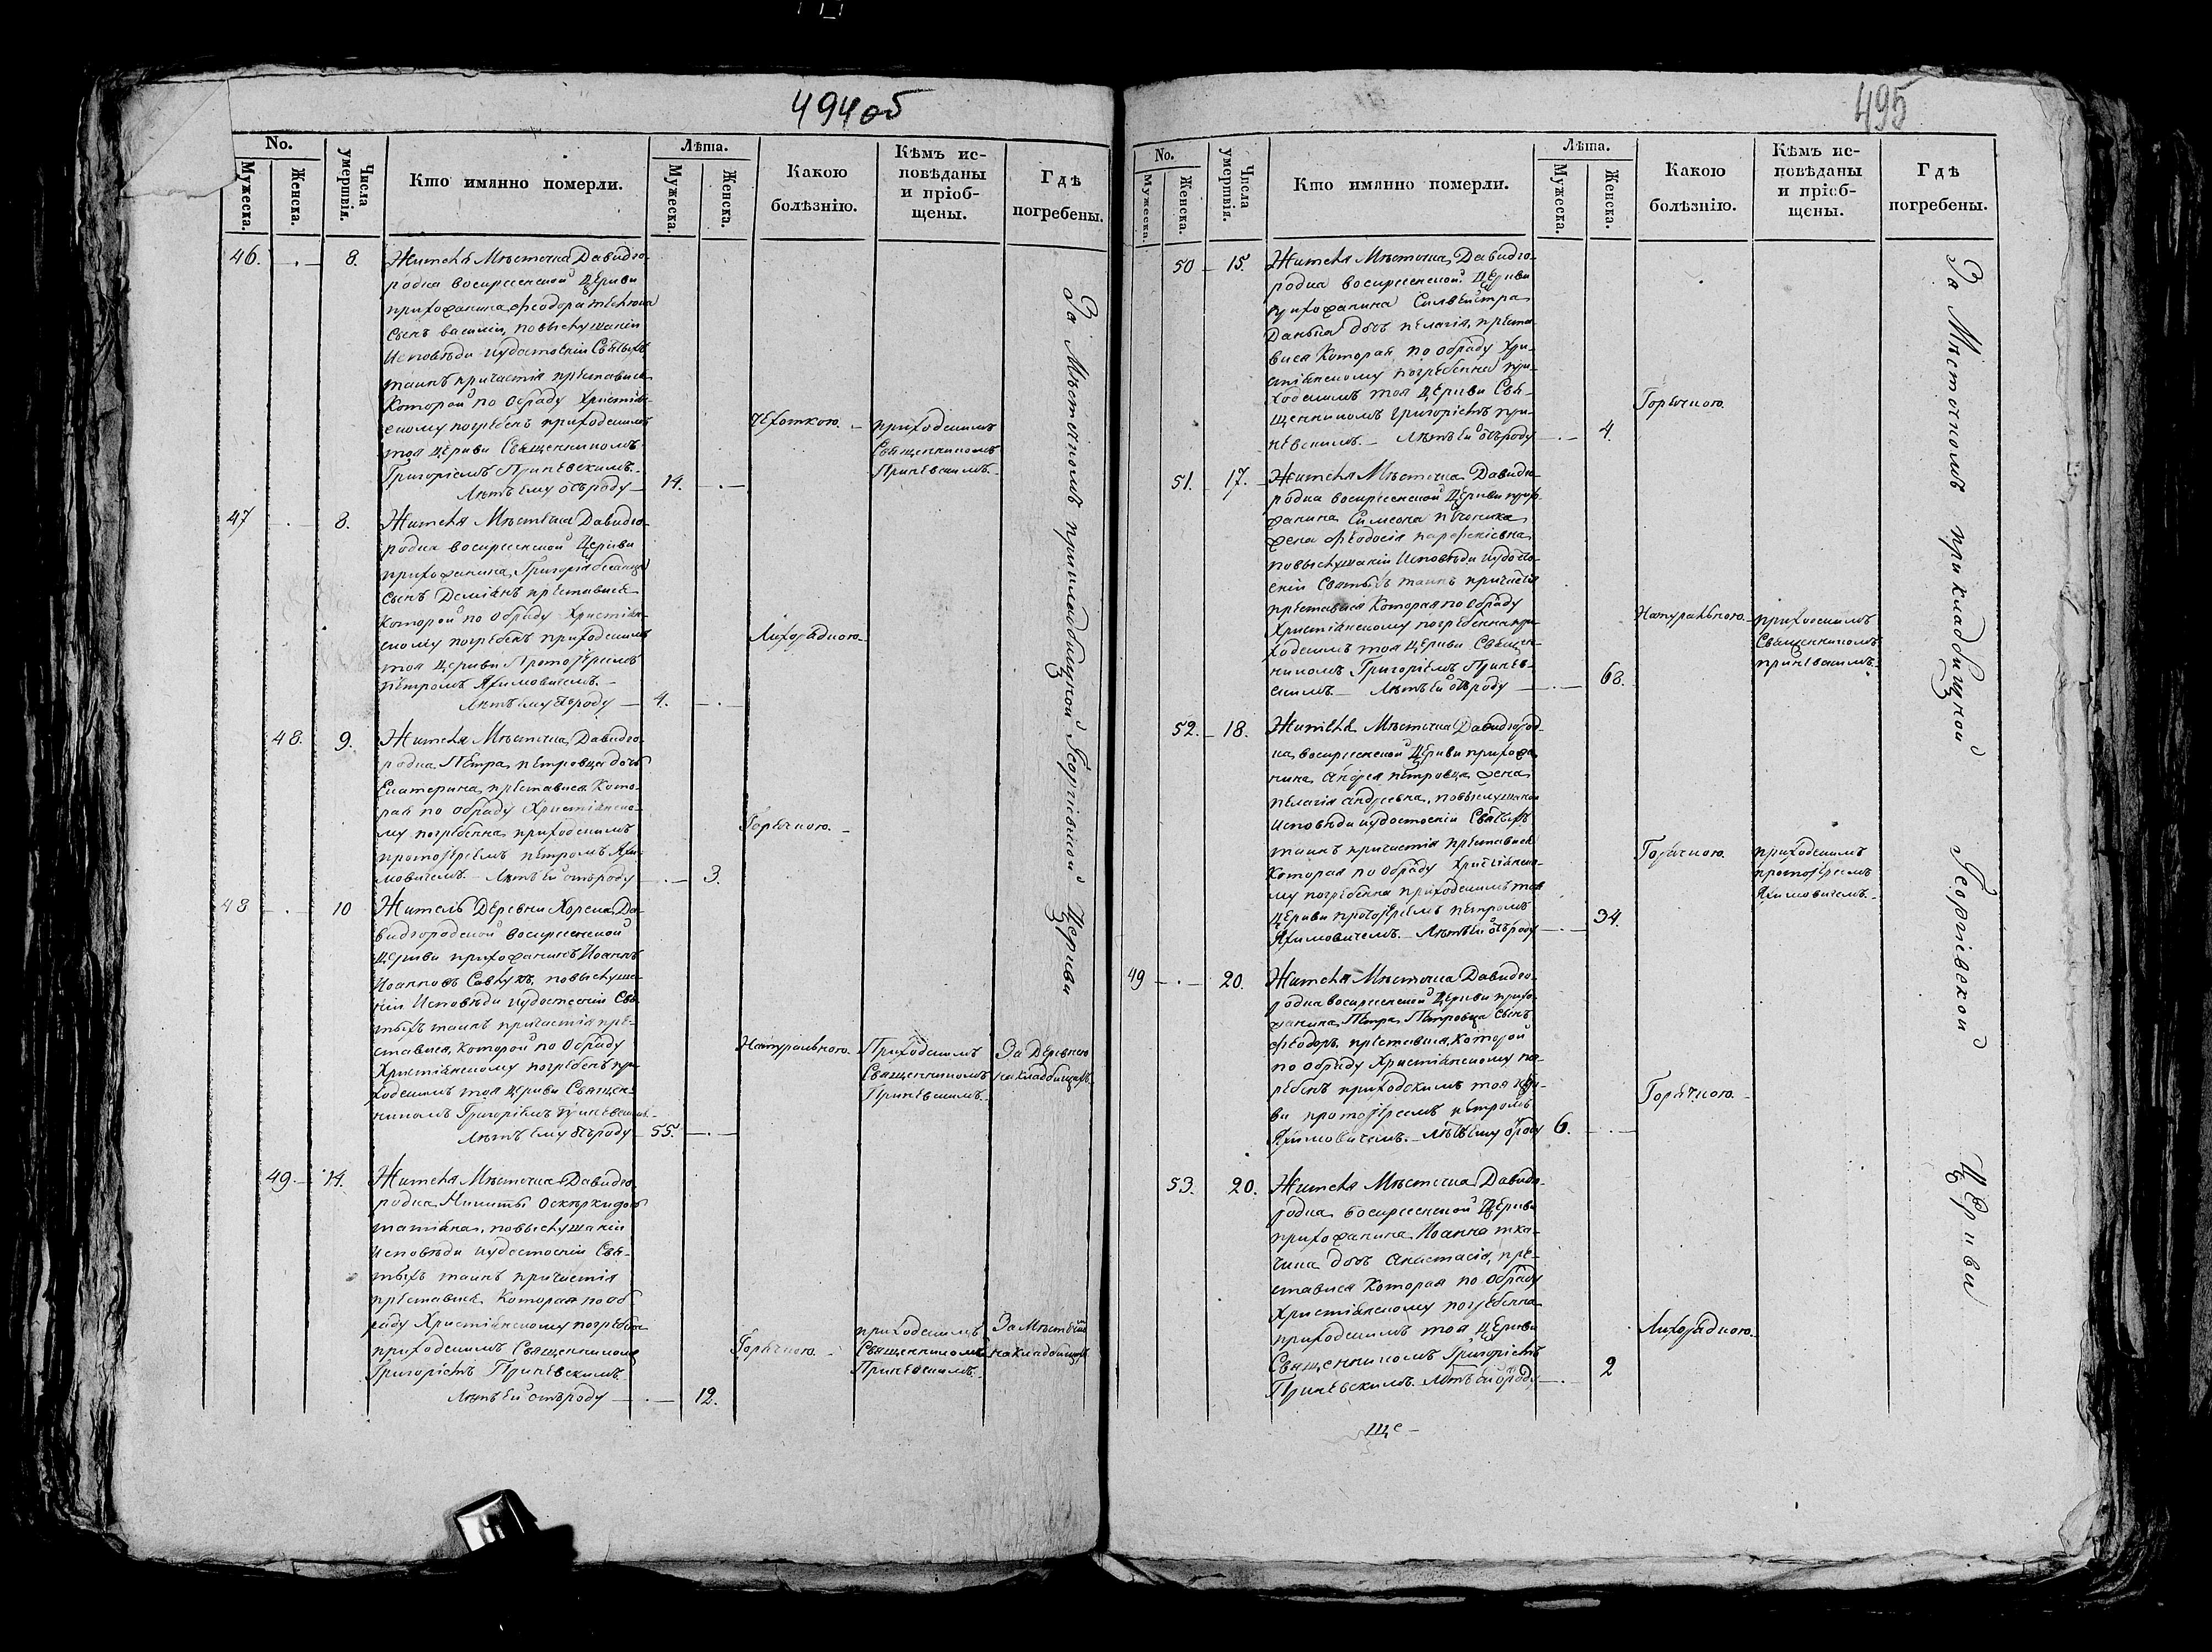 494об
No.
Мужеска.
Женска.
Числа умершвія.
Кто имянно померли.
Лѣта.
Мужеска.
Женска.
Какою болѣзнію.
Кѣмъ исповѣданы и пріобщены.
Гдѣ погребены.
46. 8. Жителя Мѣстечка Давидго-
родка воскресенской Церкви
прихожанина Ѳеодора
сынъ василій, повыслушаніи
Исповѣди иудостоеніи Святыхъ
таинъ причастія преставися
Которой по Обряду Христіан-
скому погребенъ приходскимъ
тоя Церкви Священникомъ
Григоріемъ Приневскимъ.
Лѣтъ ему отъ роду 14.
Чехоткою.
приходскимъ
Священникомъ
Приневскимъ.
За Мѣстечкомъ прикладбищной Георгіевской Церкви
47 8. Жителя Мѣстечка Давидго-
родка воскресенской Церкви
прихожанина, Григорія
сынъ Деміянъ преставися
Которой по Обряду Христіан-
скому погребенъ приходскимъ
тоя Церкви Протоіереемъ
Петромъ Якимовичемъ.
Лѣтъ ему отъ роду 4.
Лихорадкою.
48. 9. Жителя Мѣстечка Давидго-
родка Петра Петровца дочь
Екатерина, преставися Кото-
рая по Обряду Христіанско-
му погребенна приходскимъ
протоіереемъ петромъ Яки-
мовичемъ. Лѣтъ ей отъ роду 3.
Горячкою.
48 10 Житель Деревни Хорска Да-
видгородской воскресенской
Церкви прихожанинъ Иоаннъ
Иоанновъ Савлукъ, повыслуша-
ніи Исповѣди иудостоеніи Свя-
тыхъ таинъ причастія пре-
ставися, Которой по Обряду
Христіанскому погребенъ при-
ходскимъ тоя Церкви Священ-
никомъ Григоріемъ Приневскимъ.
Лѣтъ ему отъ роду 55.
Натуральною.
Приходскимъ
Священникомъ
Приневскимъ.
За Деревнею
на кладбищѣ
49. 14. Жителя Мѣстечка Давидго-
родка Никиты
татіяна, повыслушаніи
Исповѣди иудостоеніи Свя-
тыхъ таинъ причастія
преставися Которая по об-
ряду Христіанскому погребена
приходскимъ Священникомъ
Григоріемъ Приневскимъ.
Лѣтъ ей отъ роду 12.
Горячкою.
приходскимъ
Священникомъ
Приневскимъ.
За Мѣстечк
на кладбищѣ
495
No.
Мужеска.
Женска.
Числа умершвія.
Кто имянно померли.
Лѣта.
Мужеска.
Женска.
Какою болѣзнію.
Кѣмъ исповѣданы и пріобщены.
Гдѣ погребены.
50 15. Жителя Мѣстечка Давидго-
родка воскресенской Церкви
прихожанина Силвестра
Данька дочь пелагія, преста-
вися Которая по обряду Хри-
стіянскому погребенна при-
ходскимъ тоя Церкви Свя-
щенникомъ Григоріемъ при-
невскимъ. Лѣтъ ей отъ роду 4.
Горячкою.
За Мѣстечкомъ прикладбищной Георгіевской Церкви
51. 17. Жителя Мѣстечка Давидго-
родка воскресенской Церкви прихо-
жанина Симеона
жена Ѳеодосія
повыслушаніи Исповѣди иудосто-
еніи Святыхъ таинъ причастія
преставися Которая по обряду
Христіянскому погребенна при-
ходскимъ тоя Церкви Священ-
никомъ Григоріемъ Принев-
скимъ. Лѣтъ ей отъ роду 68.
Натуральною.
приходскимъ
Священникомъ
приневскимъ.
52. 18. Жителя Мѣстечка Давидгород-
ка воскресенской Церкви прихожа-
нина Андрея петровца жена
пелагія андреевна, повыслушаніи
Исповѣди иудостоеніи Святыхъ
таинъ причастія преставися
Которая по Обряду Христіанско-
му погребенна приходскимъ тоя
Церкви протоіереемъ петромъ
Якимовичемъ. Лѣтъ ей отъ роду 34.
Горячкою.
приходскимъ
протоіереемъ
Якимовичемъ.
49 20. Жителя Мѣстечка Давидго-
родка воскресенской Церкви прихо-
жанина Петра Петровца сынъ
Ѳеодоръ преставися, Которой
по обряду Христіянскому по-
гребенъ приходскимъ тоя Церк-
ви протоіереемъ петромъ
Якимовичемъ. Лѣтъ ему отъ роду 6.
Горячкою.
53. 20. Жителя Мѣстечка Давидго-
родка воскресенской Церкви
прихожанина Иоанна тка-
чика дочь Анастасія, пре-
ставися Которая по обряду
Христіянскому погребенна
приходскимъ тоя Церкви
Священникомъ Григоріемъ
Приневскимъ. Лѣтъ ей отъ роду 2
Лихорадкою.